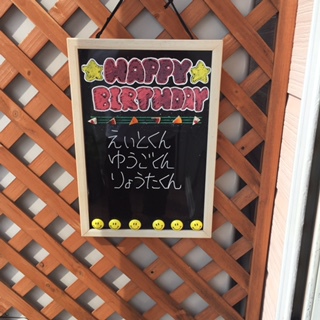 HAPPY
BIRTHDAY
えいとくん
ゆうごくん
りょうたくん